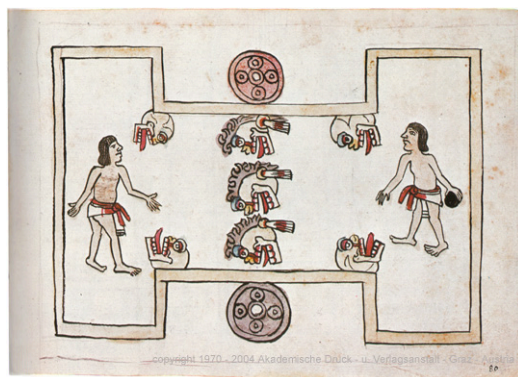 copyright 1970 - 2004 Akademische Druck - u. Verlagsanstalt - Graz - Austria